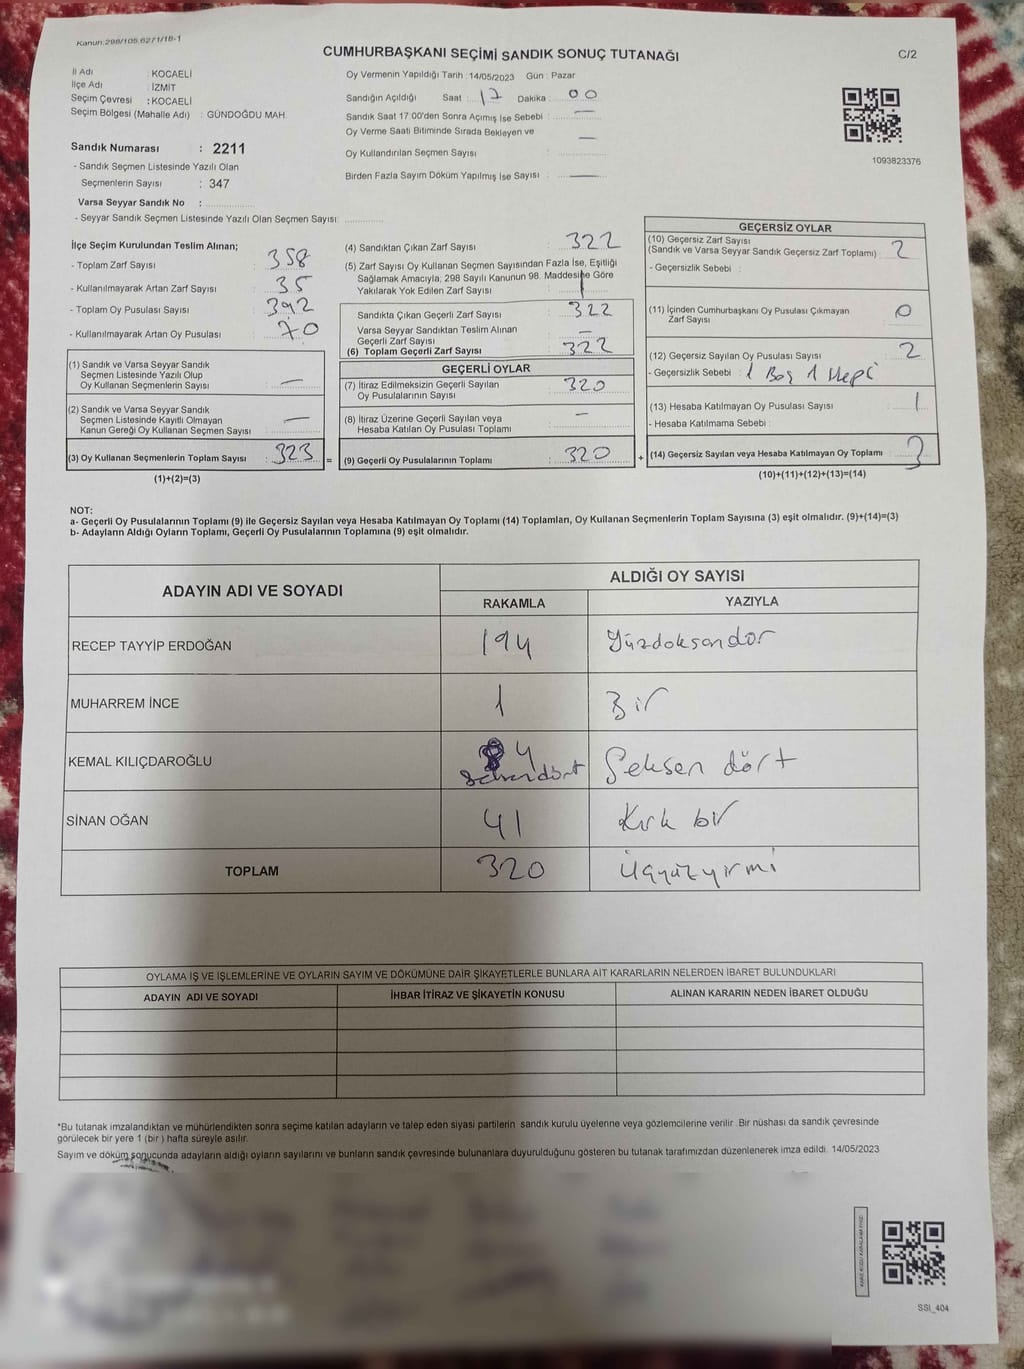 Kanun:298/105.6271/18-1
CUMHURBAŞKANI SEÇİMİ SANDIK SONUÇ TUTANAĞI
C/2
İl Adı : KOCAELİ
İlçe Adı : İZMİT
Seçim Çevresi : KOCAELİ
Seçim Bölgesi (Mahalle Adı) : GÜNDOĞDU MAH.
Sandık Numarası : 2211
- Sandık Seçmen Listesinde Yazılı Olan
Seçmenlerin Sayısı : 347
Varsa Seyyar Sandık No :
- Seyyar Sandık Seçmen Listesinde Yazılı Olan Seçmen Sayısı:
Oy Vermenin Yapıldığı Tarih :14/05/2023 Gün : Pazar
Sandığın Açıldığı Saat : 17 Dakika : 00
Sandık Saat 17 00'den Sonra Açımış İse Sebebi : —
Oy Verme Saati Bitiminde Sırada Bekleyen ve
Oy Kullandırılan Seçmen Sayısı : —
Birden Fazla Sayım Döküm Yapılmış İse Sayısı : —
1093823376
İlçe Seçim Kurulundan Teslim Alınan;
- Toplam Zarf Sayısı : 358
- Kullanılmayarak Artan Zarf Sayısı : 35
- Toplam Oy Pusulası Sayısı : 392
- Kullanılmayarak Artan Oy Pusulası : 70
(1) Sandık ve Varsa Seyyar Sandık
Seçmen Listesinde Yazılı Olup
Oy Kullanan Seçmenlerin Sayısı : —
(2) Sandık ve Varsa Seyyar Sandık
Seçmen Listesinde Kayıtlı Olmayan
Kanun Gereği Oy Kullanan Seçmen Sayısı : —
(3) Oy Kullanan Seçmenlerin Toplam Sayısı : 323 =
(1)+(2)=(3)
(4) Sandıktan Çıkan Zarf Sayısı : 322
(5) Zarf Sayısı Oy Kullanan Seçmen Sayısından Fazla İse, Eşitliği
Sağlamak Amacıyla, 298 Sayılı Kanunun 98. Maddesine Göre
Yakılarak Yok Edilen Zarf Sayısı :
Sandıkta Çıkan Geçerli Zarf Sayısı : 322
Varsa Seyyar Sandıktan Teslim Alınan
Geçerli Zarf Sayısı : —
(6) Toplam Geçerli Zarf Sayısı : 322
GEÇERLİ OYLAR
(7) İtiraz Edilmeksizin Geçerli Sayılan
Oy Pusulalarının Sayısı : 320
(8) İtiraz Üzerine Geçerli Sayılan veya
Hesaba Katılan Oy Pusulası Toplamı : —
(9) Geçerli Oy Pusulalarının Toplamı : 320 +
GEÇERSİZ OYLAR
(10) Geçersiz Zarf Sayısı
(Sandık ve Varsa Seyyar Sandık Geçersiz Zarf Toplamı) : 2
- Geçersizlik Sebebi :
(11) İçinden Cumhurbaşkanı Oy Pusulası Çıkmayan
Zarf Sayısı : 0
(12) Geçersiz Sayılan Oy Pusulası Sayısı : 2
- Geçersizlik Sebebi : 1 Boş 1 Hepi
(13) Hesaba Katılmayan Oy Pusulası Sayısı : 1
- Hesaba Katılmama Sebebi :
(14) Geçersiz Sayılan veya Hesaba Katılmayan Oy Toplamı : 3
(10)+(11)+(12)+(13)=(14)
NOT:
a- Geçerli Oy Pusulalarının Toplamı (9) ile Geçersiz Sayılan veya Hesaba Katılmayan Oy Toplamı (14) Toplamları, Oy Kullanan Seçmenlerin Toplam Sayısına (3) eşit olmalıdır. (9)+(14)=(3)
b- Adayların Aldığı Oyların Toplamı, Geçerli Oy Pusulalarının Toplamına (9) eşit olmalıdır.
ADAYIN ADI VE SOYADI
ALDIĞI OY SAYISI
RAKAMLA YAZIYLA
RECEP TAYYİP ERDOĞAN 194 Yüzdoksandör
MUHARREM İNCE 1 Bir
KEMAL KILIÇDAROĞLU 84 Seksendört Seksen dört
SİNAN OĞAN 41 Kırk bir
TOPLAM 320 Üçyüzyirmi
OYLAMA İŞ VE İŞLEMLERİNE VE OYLARIN SAYIM VE DÖKÜMÜNE DAİR ŞİKAYETLERLE BUNLARA AİT KARARLARIN NELERDEN İBARET BULUNDUKLARI
ADAYIN ADI VE SOYADI İHBAR İTİRAZ VE ŞİKAYETİN KONUSU ALINAN KARARIN NEDEN İBARET OLDUĞU
*Bu tutanak imzalandıktan ve mühürlendikten sonra seçime katılan adayların ve talep eden siyasi partilerin sandık kurulu üyelerine veya gözlemcilerine verilir. Bir nüshası da sandık çevresinde
görülecek bir yere 1 (bir) hafta süreyle asılır.
Sayım ve döküm sonucunda adayların aldığı oyların sayılarını ve bunların sandık çevresinde bulunanlara duyurulduğunu gösteren bu tutanak tarafımızdan düzenlenerek imza edildi. 14/05/2023
SSI_404